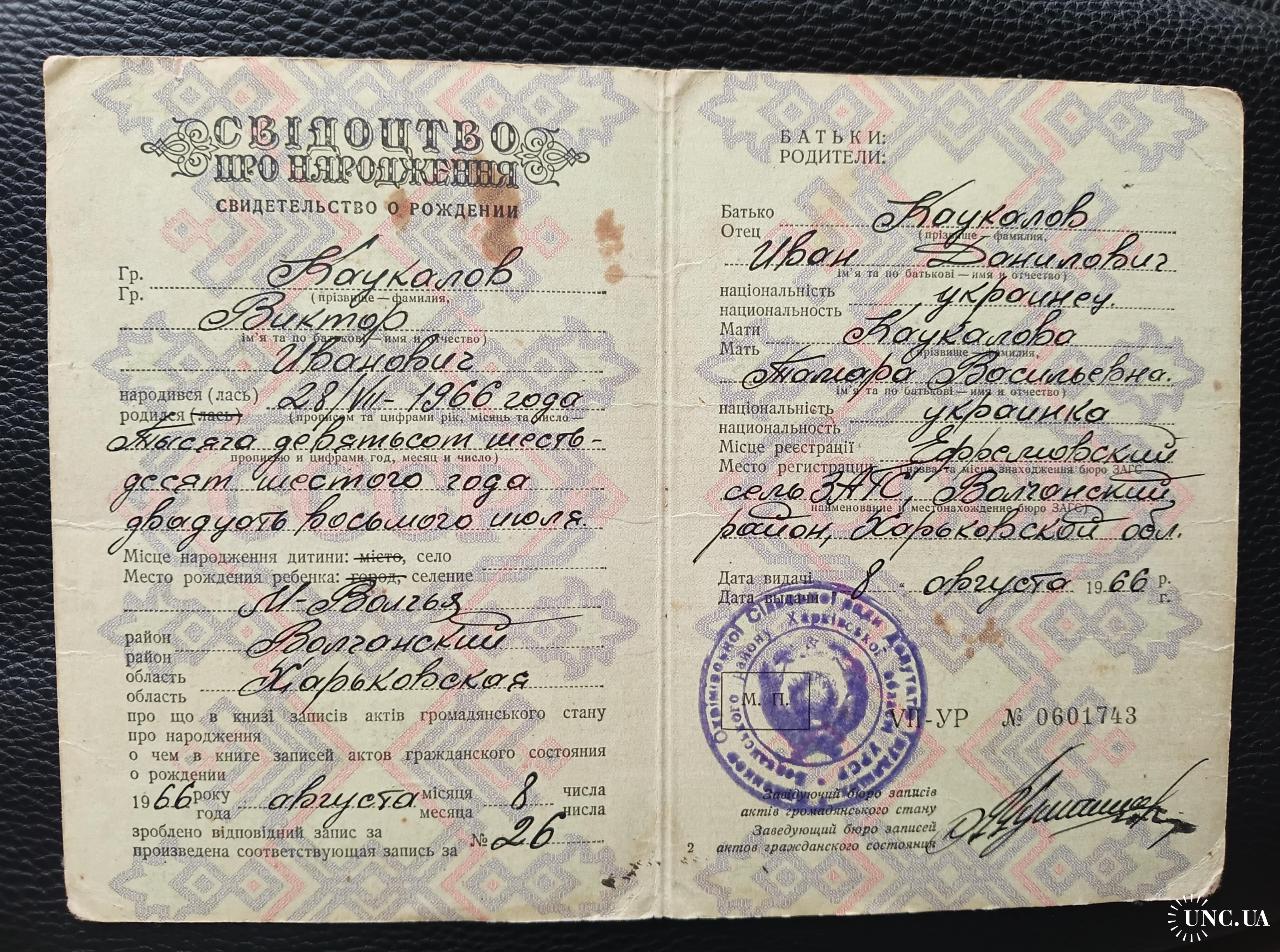 СВІДОЦТВО
ПРО НАРОДЖЕННЯ
СВИДЕТЕЛЬСТВО О РОЖДЕНИИ
Гр. Каукалов
Гр.
(прізвище — фамилия,
Виктор
ім'я та по батькові — имя и отчество)
Иванович
народився (лась) 28/VII - 1966 года
родился (лась)
(прописом та цифрами рік, місяць та число —
Тысяча девятьсот шесть-
прописью и цифрами год, месяц и число)
десят шестого года
двадцать восьмого июля.
Місце народження дитини: місто, село
Место рождения ребенка: город, селение
М-Волчья
район Волчанский
район
область Харьковская
область
про що в книзі записів актів громадянського стану
про народження
о чем в книге записей актов гражданского состояния
о рождении
1966 року августа місяця 8 числа
года месяца числа
зроблено відповідний запис за
произведена соответствующая запись за № 26
БАТЬКИ:
РОДИТЕЛИ:
Батько Каукалов
Отец
(прізвище — фамилия,
Иван Данилович
ім'я та по батькові — имя и отчество)
національність украинец.
национальность
Мати Каукалова
Мать
(прізвище — фамилия,
Тамара Васильевна.
ім'я та по батькові — имя и отчество)
національність украинка
национальность
Місце реєстрації Ефремовский
Место регистрации (назва та місце знаходження бюро ЗАГС
сельЗАГС, Волчанский
наименование и местонахождение бюро ЗАГС)
район, Харьковской обл.
Дата видачі 8 " августа 1966 р.
Дата выдачи г.
М. П.
VII-УР № 0601743
Завідуючий бюро записів
актів громадянського стану
Заведующий бюро записей
актов гражданского состояния
2
UNC.UA